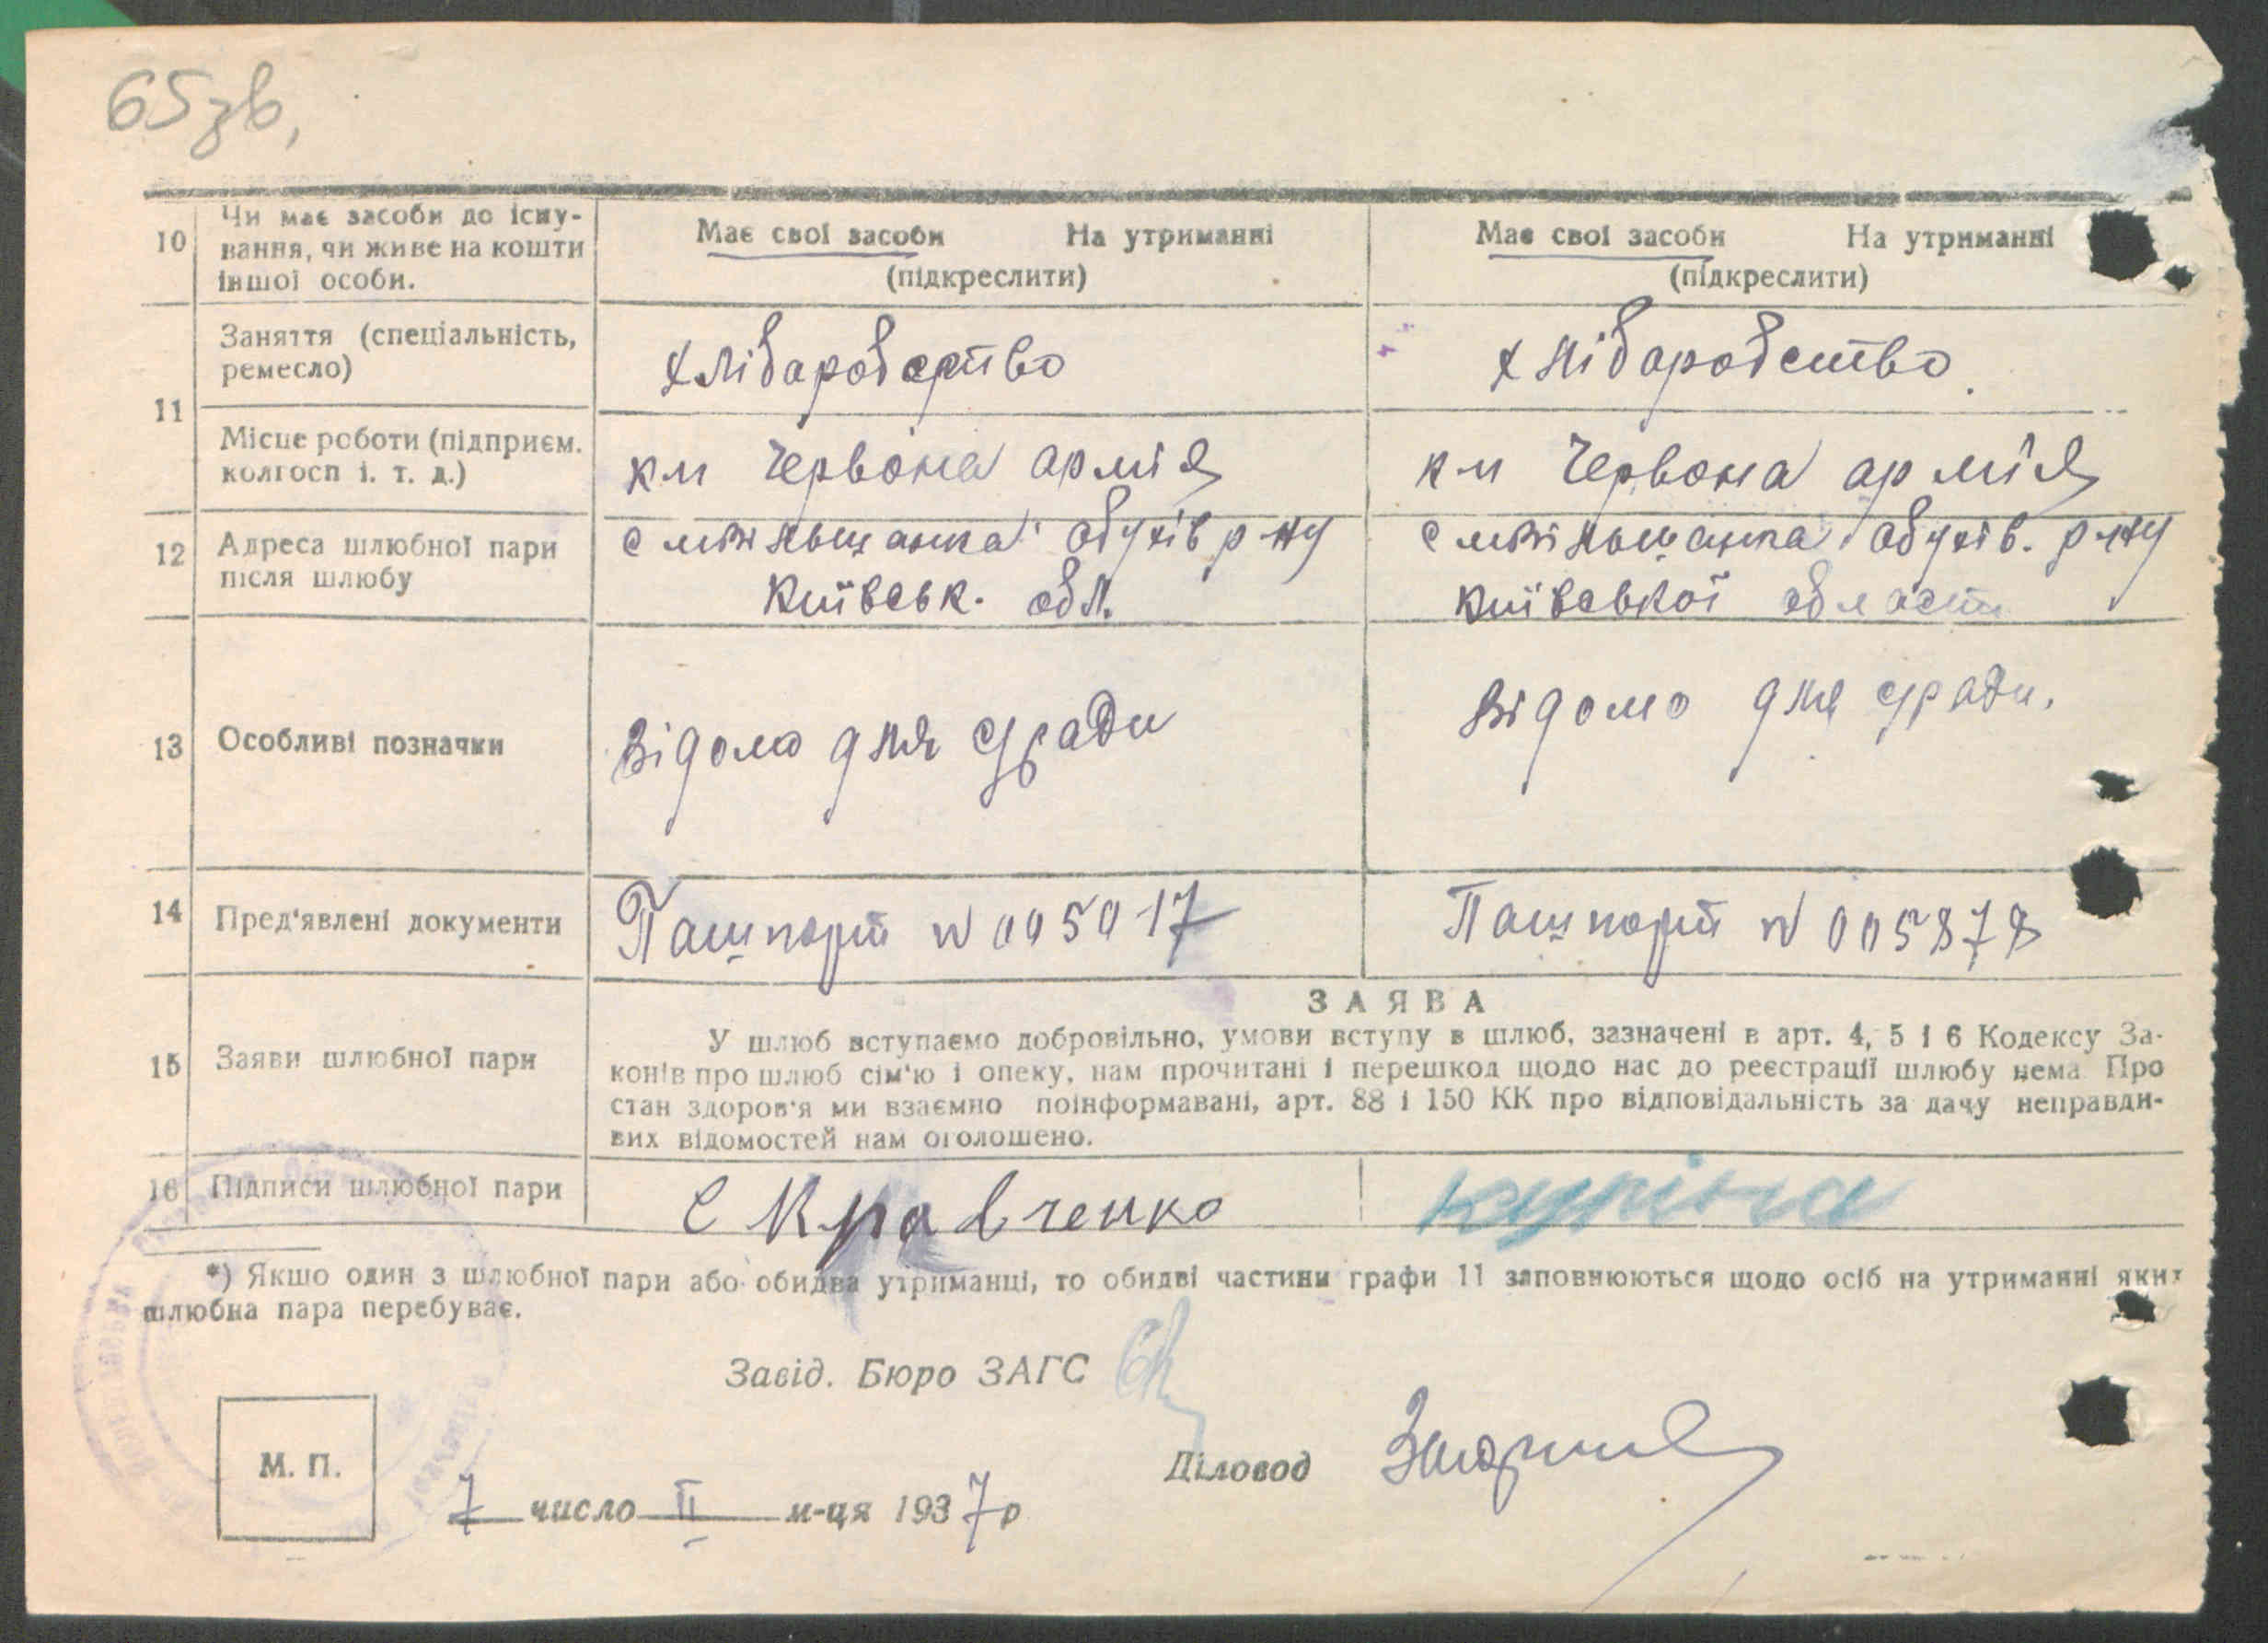 65зв,
10 Чи має засоби до існу-
вання, чи живе на кошти
іншої особи.
Має свої засоби На утриманні
(підкреслити)
Має свої засоби На утриманні
(підкреслити)
11 Заняття (спеціальність,
ремесло)
хлібаробство
хлібаробство
Місце роботи (підприєм.
колгосп і. т. д.)
Червона армія
Червона армія
12 Адреса шлюбної пари
після шлюбу
обухів р-ну
Київськ. обл.
обухів. р-ну
Київської области
13 Особливі позначки
Відомо для сради
Відомо для сради.
14 Пред'явлені документи
Пашпорт N 005017
Пашпорт N 005878
15 Заяви шлюбної пари
ЗАЯВА
У шлюб вступаємо добровільно, умови вступу в шлюб, зазначені в арт. 4, 5 і 6 Кодексу За-
конів про шлюб сім'ю і опеку, нам прочитані і перешкод щодо нас до реєстрації шлюбу нема Про
стан здоров'я ми взаємно поінформавані, арт. 88 і 150 КК про відповідальність за дачу неправди-
вих відомостей нам оголошено.
16 Підписи шлюбної пари
С Кравченко
куріна
*) Якшо один з шлюбної пари або обидва утриманці, то обидві частини графи 11 заповнюються щодо осіб на утриманні яких
шлюбна пара перебуває.
Завід. Бюро ЗАГС
Діловод
М. П.
7 число II м-ця 1937 р